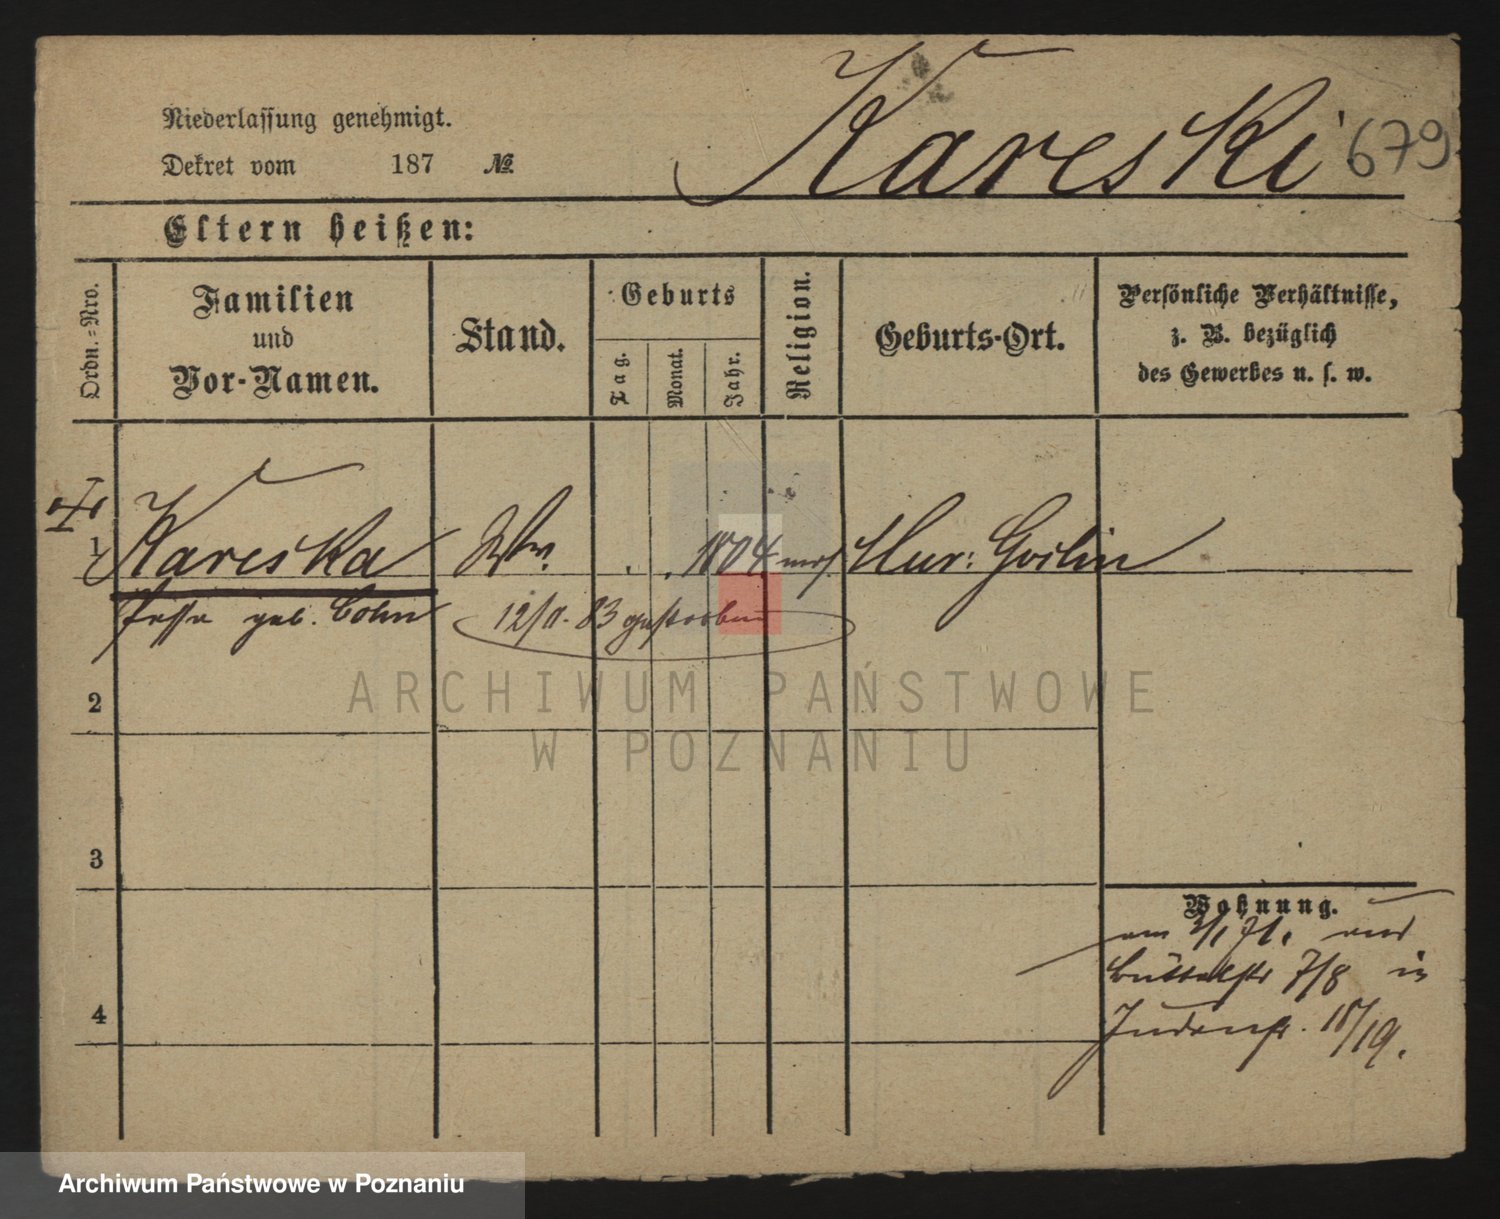 Kareski
679
Niederlassung genehmigt.
Dekret vom 187 №
Eltern heißen:
Ordn.-Nro.
Familien
und
Vor-Namen.
Stand.
Geburts
Tag.
Monat.
Jahr.
Religion.
Geburts-Ort.
Persönliche Verhältnisse,
z. B. bezüglich
des Gewerbes u. s. w.
1 Kareska Ww. 1804 mos. Mur: Goslin
geb. Cohn 83 gestorben
2
3
4
Wohnung.
am
Büttelstr 7/8 in
Judenstr. 18/19.
ARCHIWUM PAŃSTWOWE
W POZNANIU
Archiwum Państwowe w Poznaniu